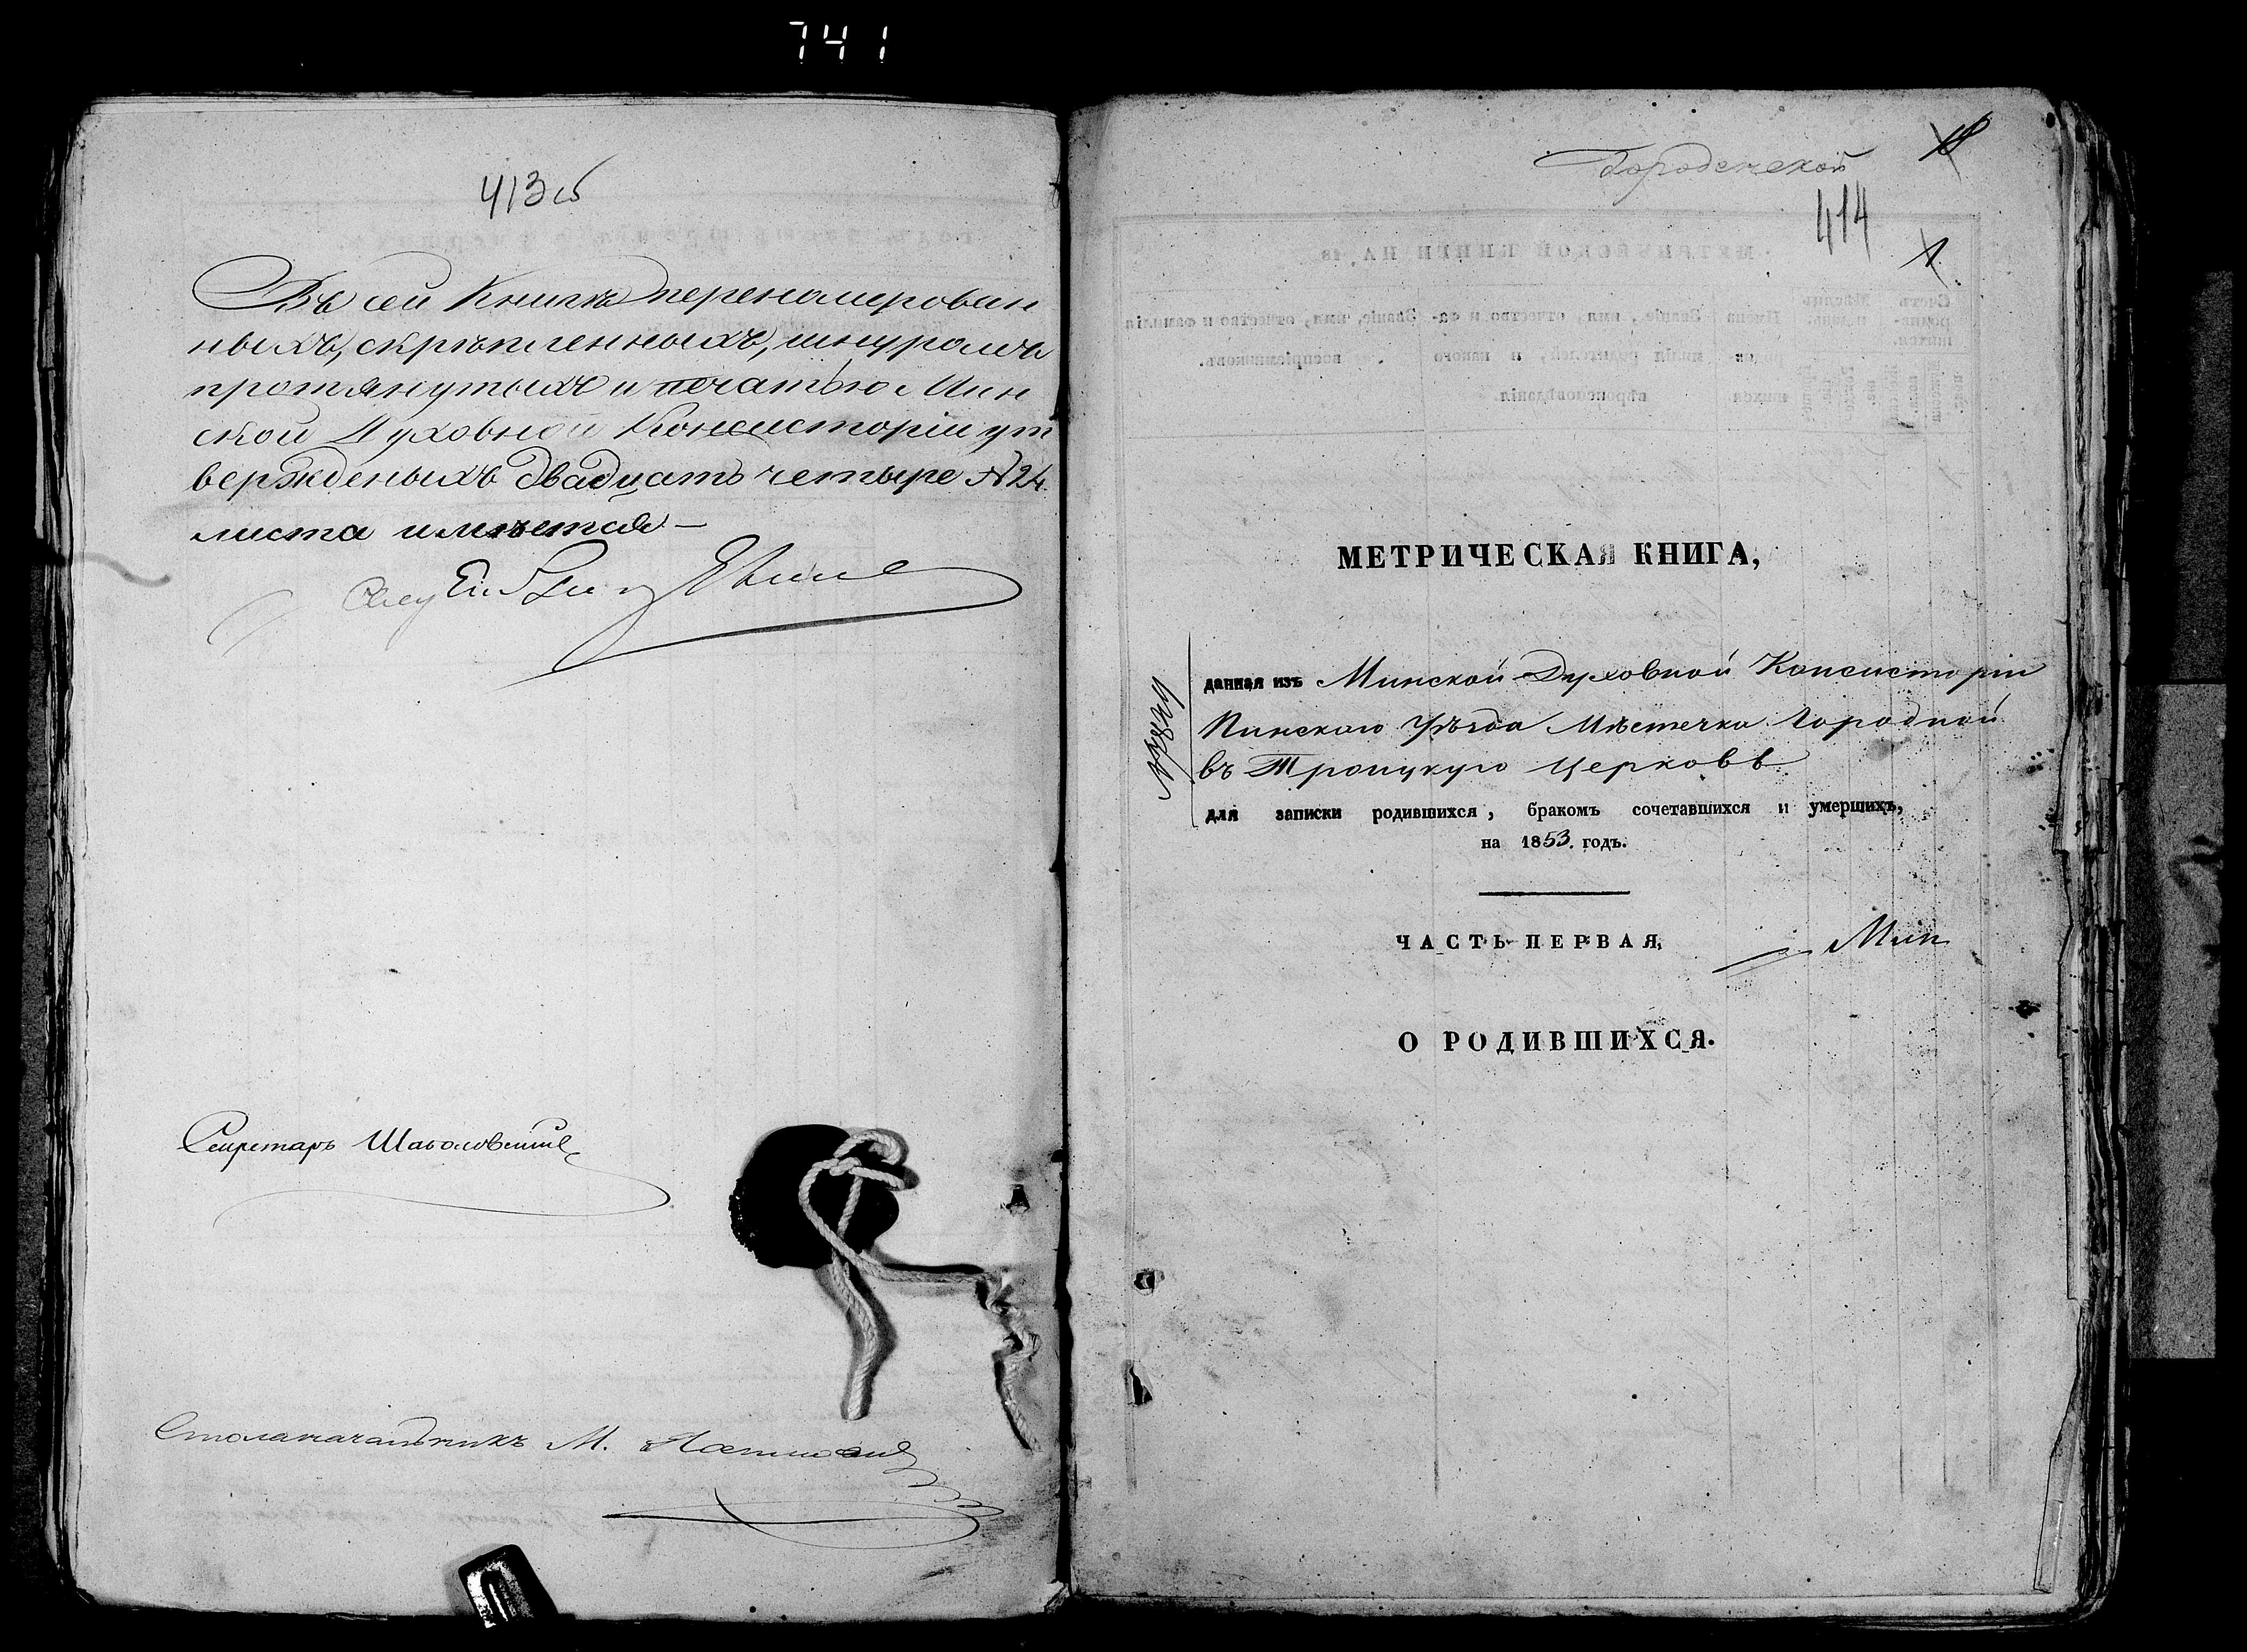 741
413об
Въ сей Книгѣ перенумерован
ныхъ, скрѣпленныхъ, шнуромъ
протянутыхъ и печатью Мин
ской Духовной Консисторіи ут
вержденыхъ двадцать четыре №24
листа имѣется —
Секретарь
Столоначальникъ М.
Городенской
414
1
МЕТРИЧЕСКАЯ КНИГА,
данная изъ Минской Духовной Консисторіи
Пинскаго Уѣзда Мѣстечка Городной
въ Троицкую Церковь
для записки родившихся, бракомъ сочетавшихся и умершихъ,
на 1853. годъ.
ЧАСТЬ ПЕРВАЯ,
Мин
О РОДИВШИХСЯ.